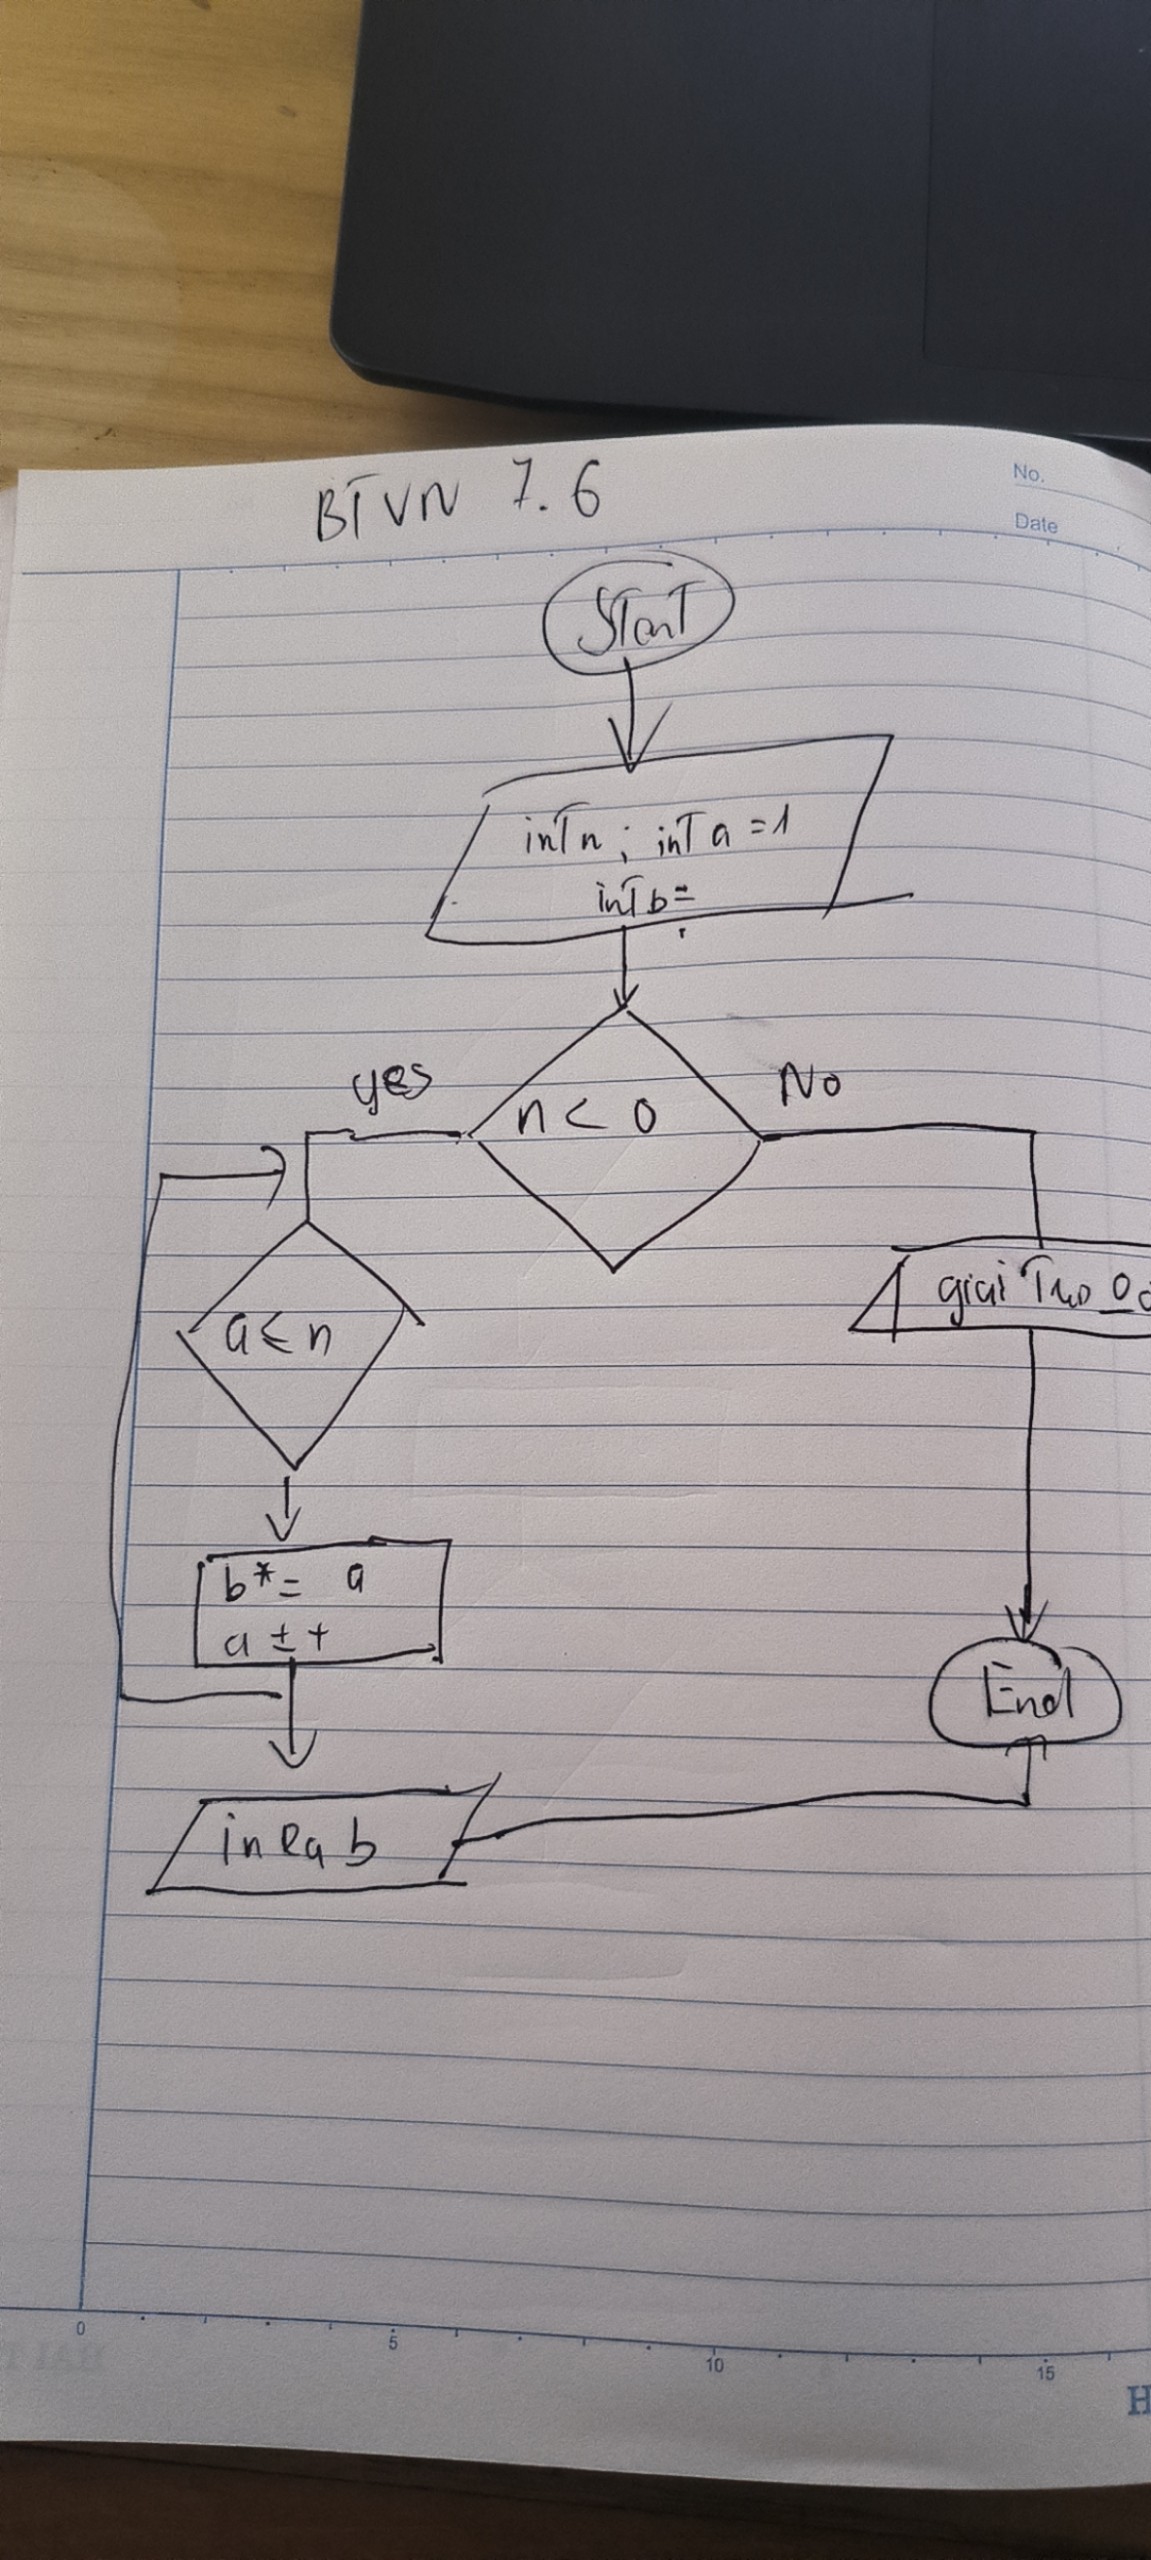 BTVN 7.6
No.
Date
Start
int n ; int a = 1
int b =
yes
n < 0
No
a ≤ n
b *= a
a ++
End
in Ra b
0
5
10
15
H